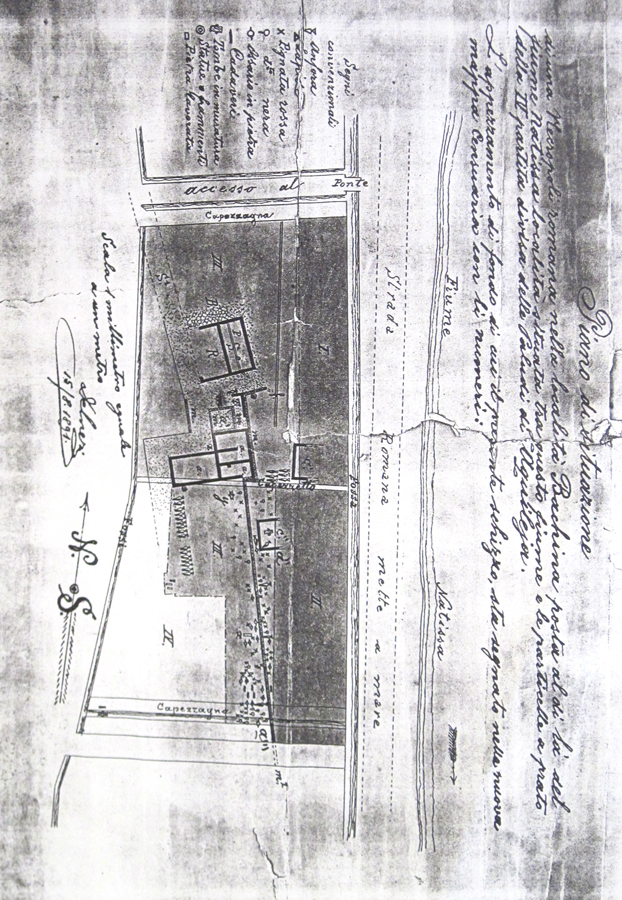 Piano di situazione
di una Necropoli romana nella località Bachina posta al di là del
fiume Natissa località situata tra questo fiume e le particelle a prato
della III partita divisa delle Paludi di Aquileja.
L'appezzamento di fondo di cui il presente schizzo, sta segnato nella nuova
mappa Censuaria con li numeri:
Segni
convenzionali
Anfora
X Pignata rossa
d.º nera
Ossuario in pietra
Cadaveri
Tombe in muratura
Statue e frammenti
Pietra lavorata
Fiume
Natissa
Strada Romana mette a mare
accesso al Ponte
Capezzagna
Fossa
I
II
III
III
IV
Capezzagna
Fossa
N S
Scala 1 millimetro eguale
a un metro